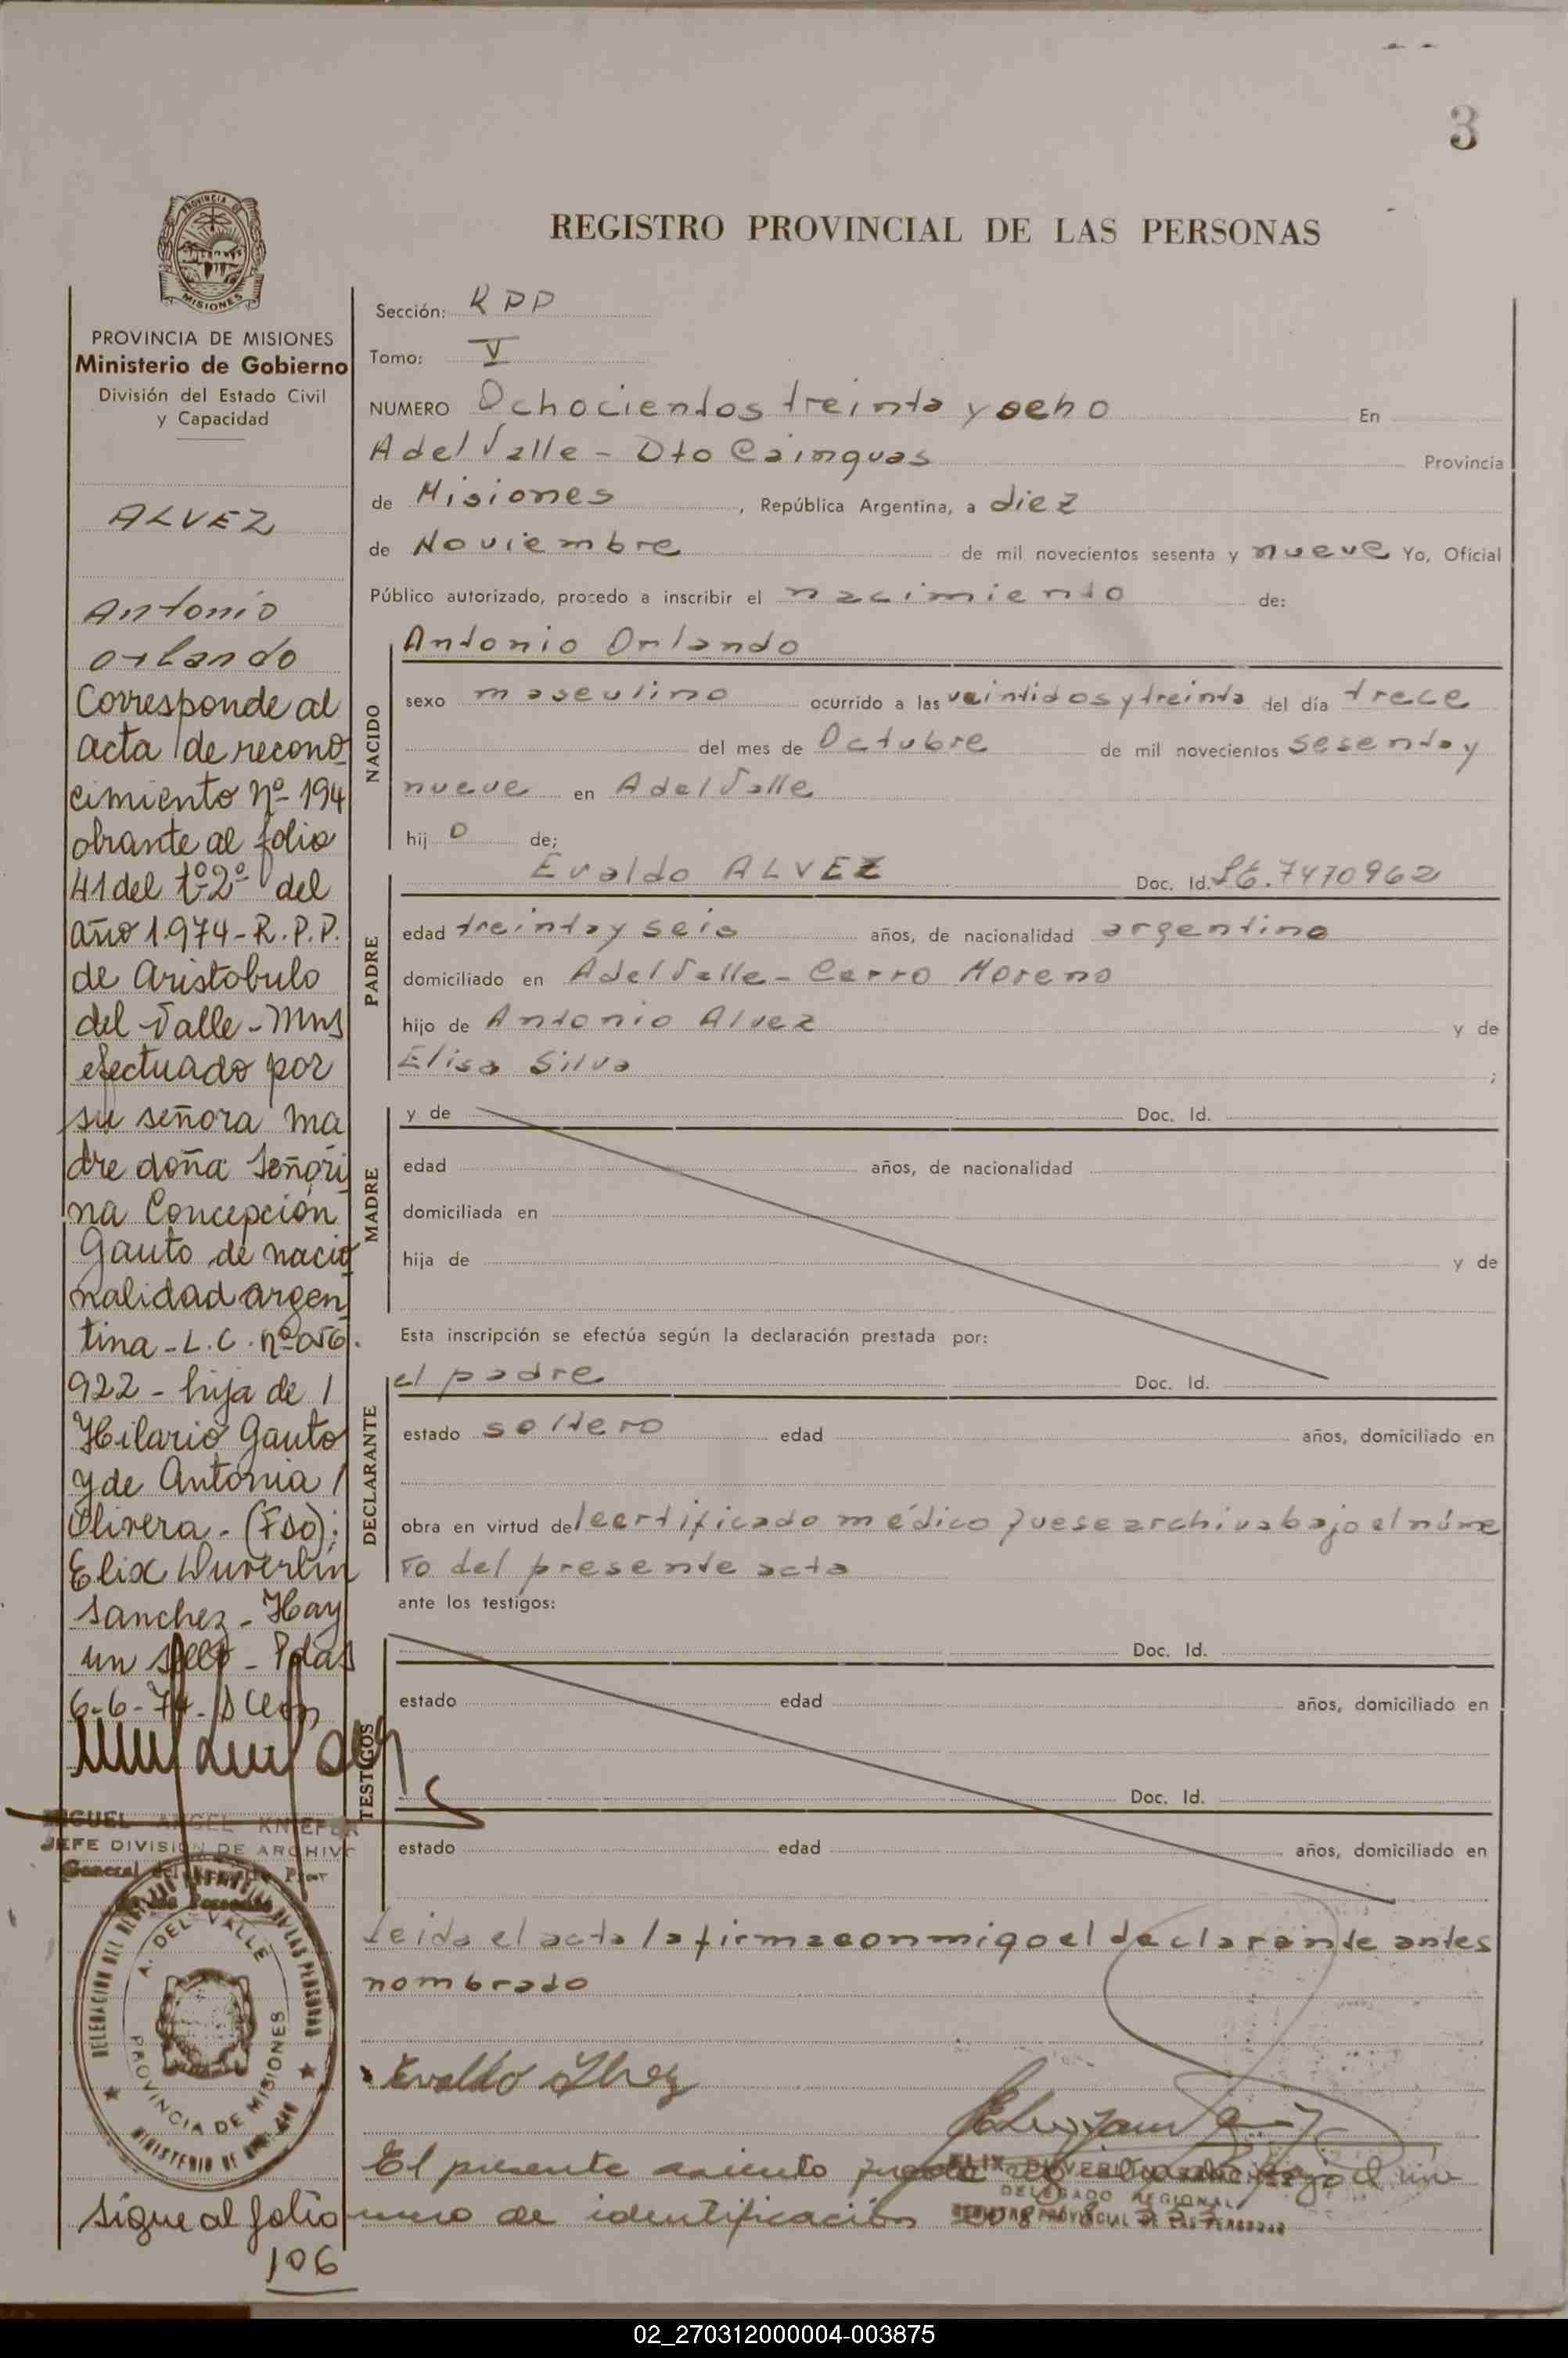 3
PROVINCIA DE
MISIONES
REGISTRO PROVINCIAL DE LAS PERSONAS
PROVINCIA DE MISIONES
Ministerio de Gobierno
División del Estado Civil
y Capacidad
ALVEZ
Antonio
Orlando
Corresponde al
acta de recono
cimiento nº 194
obrante al folio
41 del tº 2º del
año 1.974-R.P.P.
de Aristobulo
del Valle-Mns
efectuado por
su señora ma
dre doña Señori
na Concepción
Gauto de nacio
nalidad argen
tina-L.C. nº 056.
922-hija de
Hilario Gauto
y de Antonia
Olivera-(Fdo):
Elix Duverlin
Sanchez-Hay
un sello-Pdas
6-6-74-
MIGUEL ANGEL
JEFE DIVISION DE ARCHIVO
General del
A. DEL VALLE
PROVINCIA DE MISIONES
DELEGACION DEL REGISTRO PROVINCIAL DE LAS PERSONAS
MINISTERIO DE
Sigue al folio
106
Sección: RPP
Tomo: V
NUMERO Ochocientos treinta y ocho En
A del Valle - Dto Cainguas Provincia
de Misiones, República Argentina, a diez
de Noviembre de mil novecientos sesenta y nueve Yo, Oficial
Público autorizado, procedo a inscribir el nacimiento de:
NACIDO
Antonio Orlando
sexo masculino ocurrido a las veintidos y treinta del día trece
del mes de Octubre de mil novecientos sesenta y
nueve en A del Valle
hijo de;
PADRE
Evaldo ALVEZ Doc. Id. LE.7470962
edad treinta y seis años, de nacionalidad argentino
domiciliado en A del Valle - Cerro Moreno
hijo de Antonio Alvez y de
Elisa Silva ;
MADRE
y de Doc. Id.
edad años, de nacionalidad
domiciliada en
hija de y de
Esta inscripción se efectúa según la declaración prestada por:
DECLARANTE
el padre Doc. Id.
estado soltero edad años, domiciliado en
obra en virtud del certificado médico que se archiva bajo el núme
ro del presente acta
ante los testigos:
TESTIGOS
Doc. Id.
estado edad años, domiciliado en
Doc. Id.
estado edad años, domiciliado en
Leida el acta la firma conmigo el declarante antes
nombrado
Evaldo Alvez
El presente asiento
mero de identificación
ELIX DUVERLIN SANCHEZ
DELEGADO REGIONAL
REGISTRO PROVINCIAL DE LAS PERSONAS
02_270312000004-003875